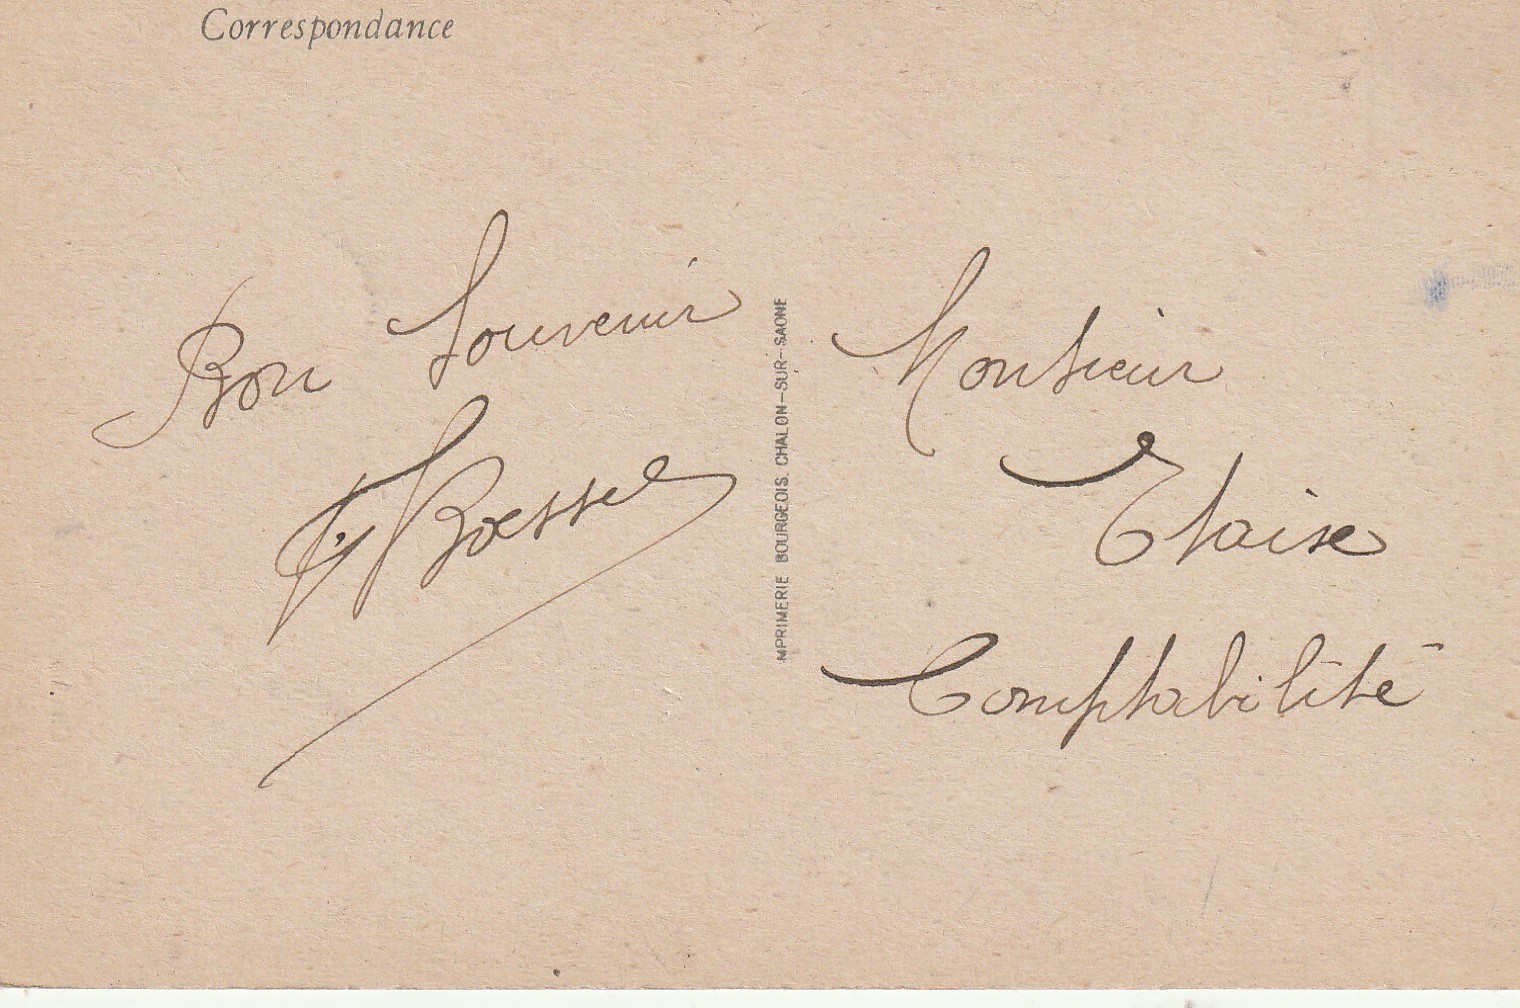 Correspondance
Bon Souvenir
MPRIMERIE BOURGEOIS. CHALON-SUR-SAONE
Monsieur
Comptabilité